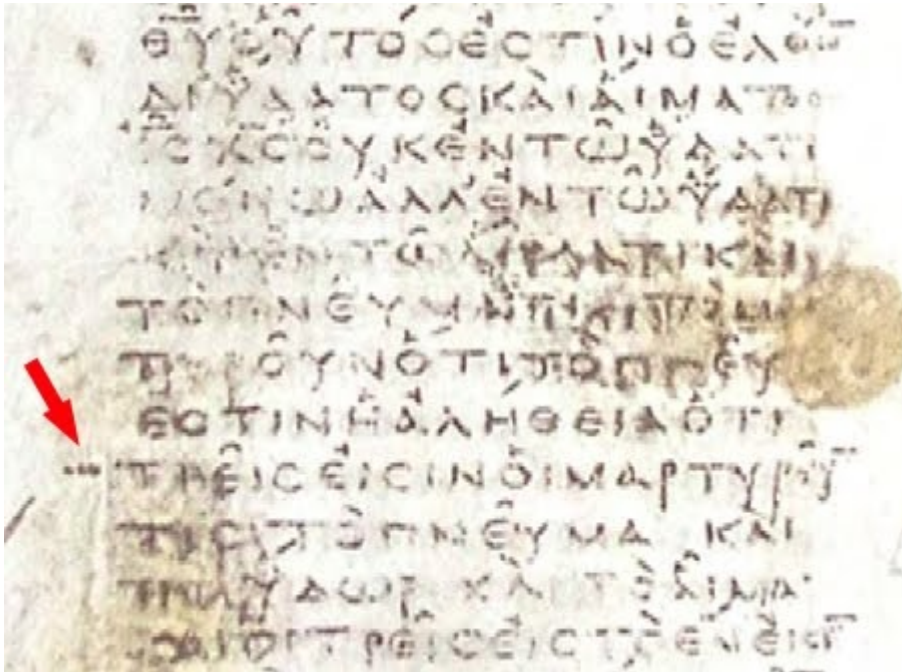 ΘΥ ΟΥΤΟϹ ΕϹΤΙΝ Ο ΕΛΘΩ
ΔΙ ΥΔΑΤΟϹ ΚΑΙ ΑΙΜΑΤΟ
ΙϹ ΧϹ ΟΥΚ ΕΝ ΤΩ ΥΔΑΤΙ
ΜΟΝΩ ΑΛΛ ΕΝ ΤΩ ΥΔΑΤΙ
ΕΝ ΤΩ ΚΑΙ
ΤΟ ΠΝΕΥΜΑ
ΟΤΙ ΤΟ ΠΝΕΥ
ΕϹΤΙΝ Η ΑΛΗΘΕΙΑ ΟΤΙ
ΤΡΕΙϹ ΕΙϹΙΝ ΟΙ ΜΑΡΤΥΡΟΥ
ΤΟ ΠΝΕΥΜΑ ΚΑΙ
ΥΔΩΡ ΚΑΙ ΤΟ ΑΙΜΑ
ΚΑΙ ΟΙ ΤΡΕΙϹ ΕΙϹ ΤΟ ΕΝ ΕΙϹΙ